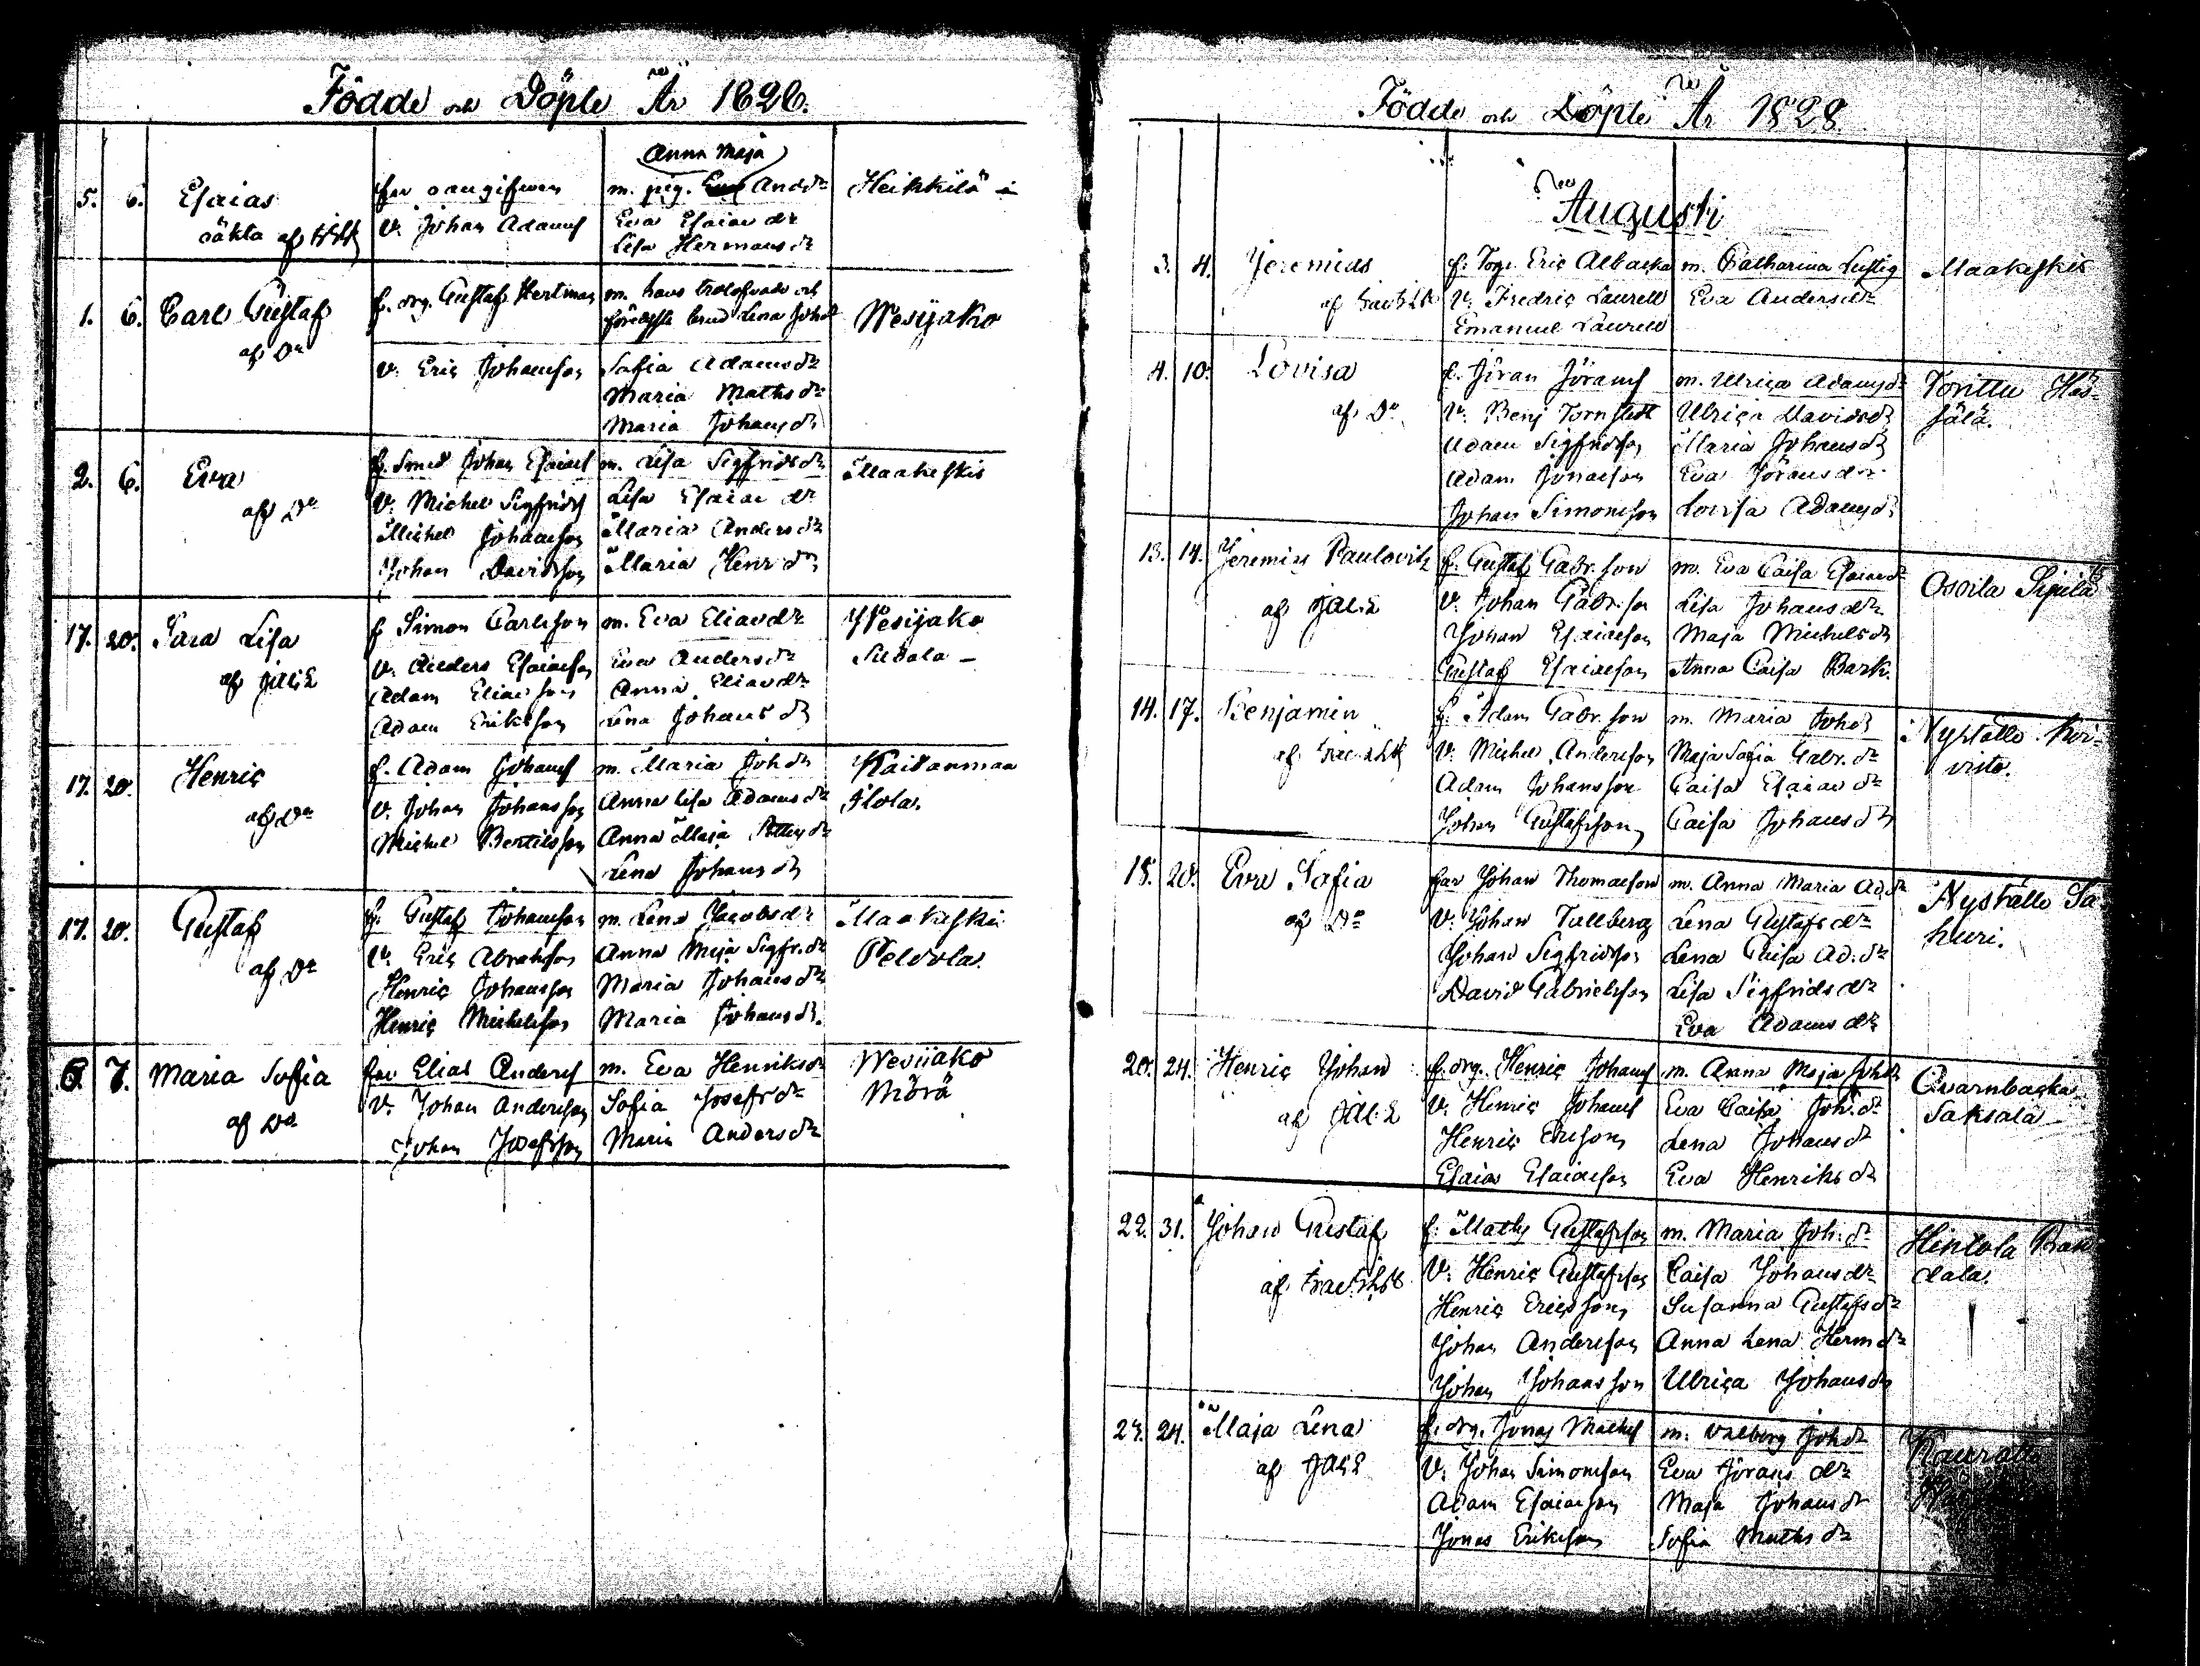 Födde och Döpte År 1828.
Anna Maja
5. 6. Esaias far oangifwen m. pig. And:dr Heikkilä
oäkta af V. Johan Adamss Eva Esaiae dr
Lisa Hermans dr
1. 6. Carl Gustaf f. drg. Gustaf Hertman m. hans trolofvade och Wesijako
af Do förelofvade brud Lena Joh:dr
V. Eric Johansson Sofia Adams dr
Maria Maths dr
Maria Johans dr
2. 6. Eva f. Smed Johan Esaiaess m. Lisa Sigfrids dr Maakeskis
af Do V. Michel Sigfridss Lisa Esaiae dr
Michel Johansson Maria Anders dr
Johan Davidsson Maria Henr dr
17. 20. Sara Lisa f Simon Carlsson m. Eva Eliae dr Wesijako
af V. Anders Esaiaeson Eva Anders dr Sudola
Adam Eliaeson Anna Eliae dr
Adam Eriksson Lena Johans dr
17. 20. Henric f. Adam Johanss m. Maria Joh dr Kaidanmaa
af Do V. Johan Johansson Anna Lisa Adams dr Ilola.
Michel Bertilsson Anna Maja dr
Lena Johans dr
17. 20. Gustaf f. Gustaf Johansson m. Lena Jacobs dr Maakeski
af Do V. Eric Abrahsson Anna Maja Sigfr. dr Peldola.
Henric Johansson Maria Johans dr
Henric Michelsson Maria Johans dr.
6. 7. Maria Sofia far Elias Anderss m. Eva Henriks dr Wesijako
af Do V. Johan Andersson Sofia Josefs dr Mörä
Johan Josefsson Maria Anders dr
Födde och Döpte År 1828.
Augusti
3. 4. Jeremias f. Torp. Eric Albacka m. Catharina Lustig Maakeskis
af V. Fredric Laurell Eva Anders dr
Emanuel Laurell
4. 10. Lovisa f. Jöran Jöranss m. Ulrica Adams dr Torittu Has-
af Do V. Benj Tornstedt Ulrica Davids dr jälä.
Adam Sigfridsson Maria Johans dr
Adam Jonaeson Eva Jörans dr
Johan Simonsson Lovisa Adams dr
13. 14. Jeremias Paulovitz f. Gustaf Gabr.son m. Eva Caisa Esaiae dr Osoila Sipilä
af V. Johan Gabr.son Lisa Johans dr
Johan Esaiaeson Maja Michels dr
Gustaf Esaiaeson Anna Caisa Bark.
14. 17. Benjamin f. Adam Gabr.son m. Maria Joh dr Nyställe Koi-
af V. Michel Andersson Maja Sofia Gabr. dr visto.
Adam Johansson Caisa Esaiae dr
Johan Gustafsson Caisa Johans dr
18. 20. Eva Sofia far Johan Thomaeson m. Anna Maria Ad. dr Nyställe Sa-
af Do V. Johan Tallberg Lena Gustafs dr huri.
Johan Sigfridsson Lena Caisa Ad. dr
David Gabrielsson Lisa Sigfrids dr
Eva Adams dr
20. 24. Henric Johan f. drg. Henric Johanss m. Anna Maja Joh dr Qvarnbacka
af V. Henric Johanss Eva Caisa Joh. dr Saksala
Henric Ericson Lena Johans dr
Esaia Esaiaeson Eva Henriks dr
22. 31. Johan Gustaf f. Maths Gustafsson m. Maria Joh. dr Hintola Ran-
af V. Henric Gustafsson Caisa Johans dr dala.
Henric Ericsson Susanna Gustafs dr
Johan Andersson Anna Lena Herm dr
Johan Johansson Ulrica Johans dr
23. 24. Maja Lena f. drg. Jonas Mathss m. Valborg Joh dr
af V. Johan Simonsson Eva Jörans dr
Adam Esaiaeson Maja Johans dr
Jonas Eriksson Sofia Maths dr